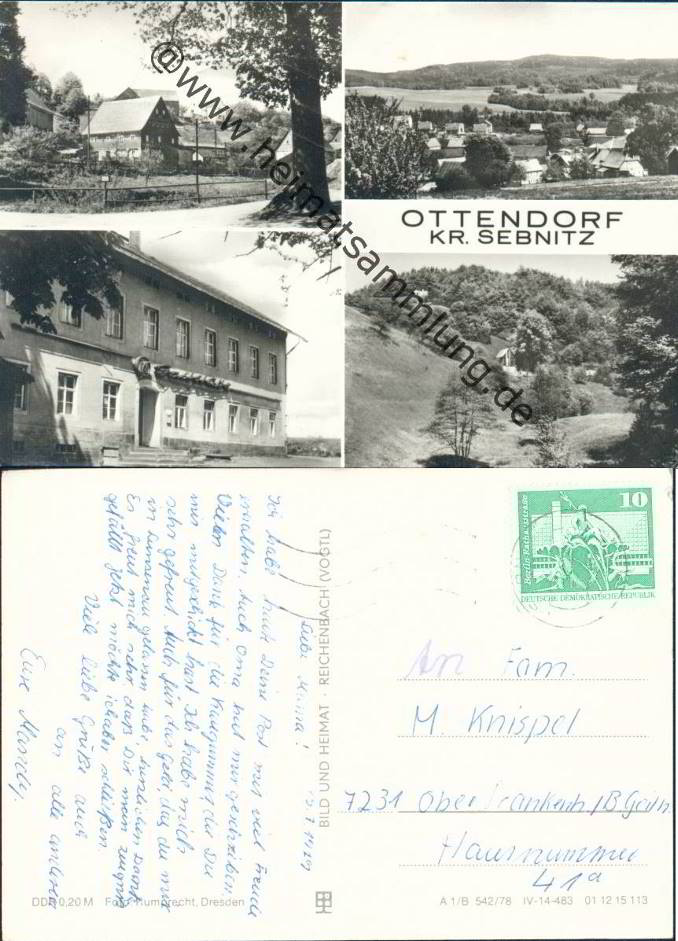 @www.heimatsammlung.de
OTTENDORF
KR. SEBNITZ
10
Berlin-Rathausstraße
DEUTSCHE DEMOKRATISCHE REPUBLIK
An Fam.
M. Knispel
7231
Hausnummer
41a
BILD UND HEIMAT · REICHENBACH (VOGTL)
Liebe Mama!
Ich habe heut Deine Post mit viel Freude
erhalten. Auch Oma hat mir geschrieben.
Vielen Dank für die die Du
mir mitgeschickt hast. Ich habe mich
sehr gefreut. Auch für das Geld, das du mir
in gelassen hast, herzlichen Dank.
Es freut mich sehr daß Dir mein Zeugnis
gefällt. Jetzt möchte ich aber schließen.
Viele liebe Grüße auch
an alle anderen
Eure Mandy.
DDR 0,20 M Foto: Humbrecht, Dresden
A 1/B 542/78 IV-14-483 01 12 15 113